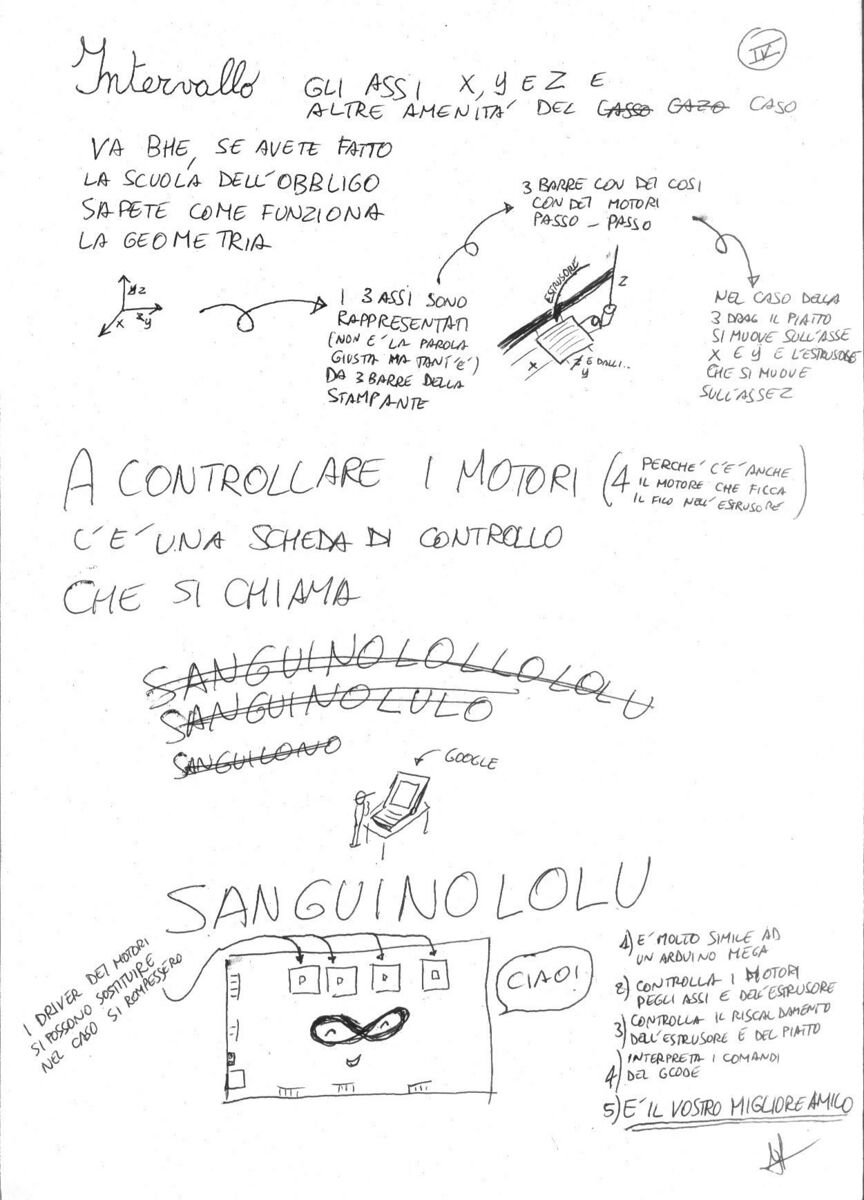 IV
Intervallo GLI ASSI X, Y E Z E
ALTRE AMENITA' DEL GASSO GAZO CASO
VA BHE, SE AVETE FATTO
LA SCUOLA DELL'OBBLIGO
SAPETE COME FUNZIONA
LA GEOMETRIA
Z
X
Y
I 3 ASSI SONO
RAPPRESENTATI
(NON E' LA PAROLA
GIUSTA MA TANT'E')
DA 3 BARRE DELLA
STAMPANTE
3 BARRE CON DEI COSI
CON DEI MOTORI
PASSO - PASSO
ESTRUSORE
Z
X
Z E DALLI..
Y
NEL CASO DELLA
3 DRAG IL PIATTO
SI MUOVE SULL'ASSE
X E Y E L'ESTRUSORE
CHE SI MUOVE
SULL'ASSE Z
A CONTROLLARE I MOTORI (4 PERCHE' C'E' ANCHE
IL MOTORE CHE FICCA
IL FILO NELL'ESTRUSORE)
C'E' UNA SCHEDA DI CONTROLLO
CHE SI CHIAMA
SANGUINOLOLLOLOLU
SANGUINOLULO
SANGUILONO
GOOGLE
SANGUINOLOLU
I DRIVER DEI MOTORI
SI POSSONO SOSTITUIRE
NEL CASO SI ROMPESSERO
CIAO!
1) E' MOLTO SIMILE AD
UN ARDUINO MEGA
2) CONTROLLA I MOTORI
DEGLI ASSI E DELL'ESTRUSORE
3) CONTROLLA IL RISCALDAMENTO
DELL'ESTRUSORE E DEL PIATTO
4) INTERPRETA I COMANDI
DEL GCODE
5) E' IL VOSTRO MIGLIORE AMICO